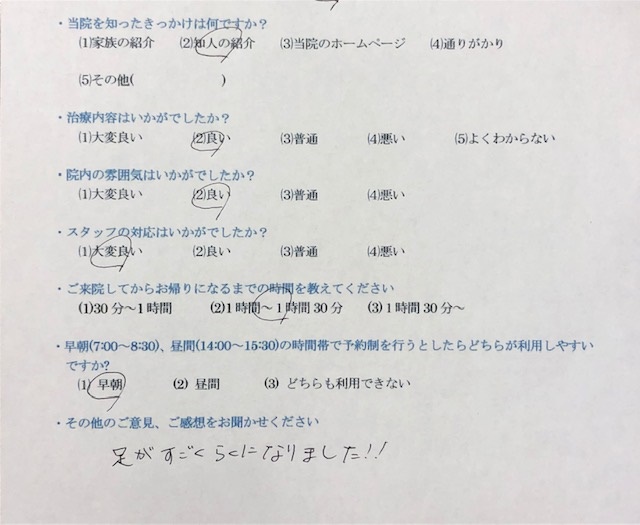 ・当院を知ったきっかけは何ですか？
(1)家族の紹介 (2)知人の紹介 (3)当院のホームページ (4)通りがかり
(5)その他( )
・治療内容はいかがでしたか？
(1)大変良い (2)良い (3)普通 (4)悪い (5)よくわからない
・院内の雰囲気はいかがでしたか？
(1)大変良い (2)良い (3)普通 (4)悪い
・スタッフの対応はいかがでしたか？
(1)大変良い (2)良い (3)普通 (4)悪い
・ご来院してからお帰りになるまでの時間を教えてください
(1)30分～1時間 (2)1時間～1時間30分 (3)1時間30分～
・早朝(7:00～8:30)、昼間(14:00～15:30)の時間帯で予約制を行うとしたらどちらが利用しやすい
ですか?
(1) 早朝 (2) 昼間 (3) どちらも利用できない
・その他のご意見、ご感想をお聞かせください
足がすごくらくになりました!!